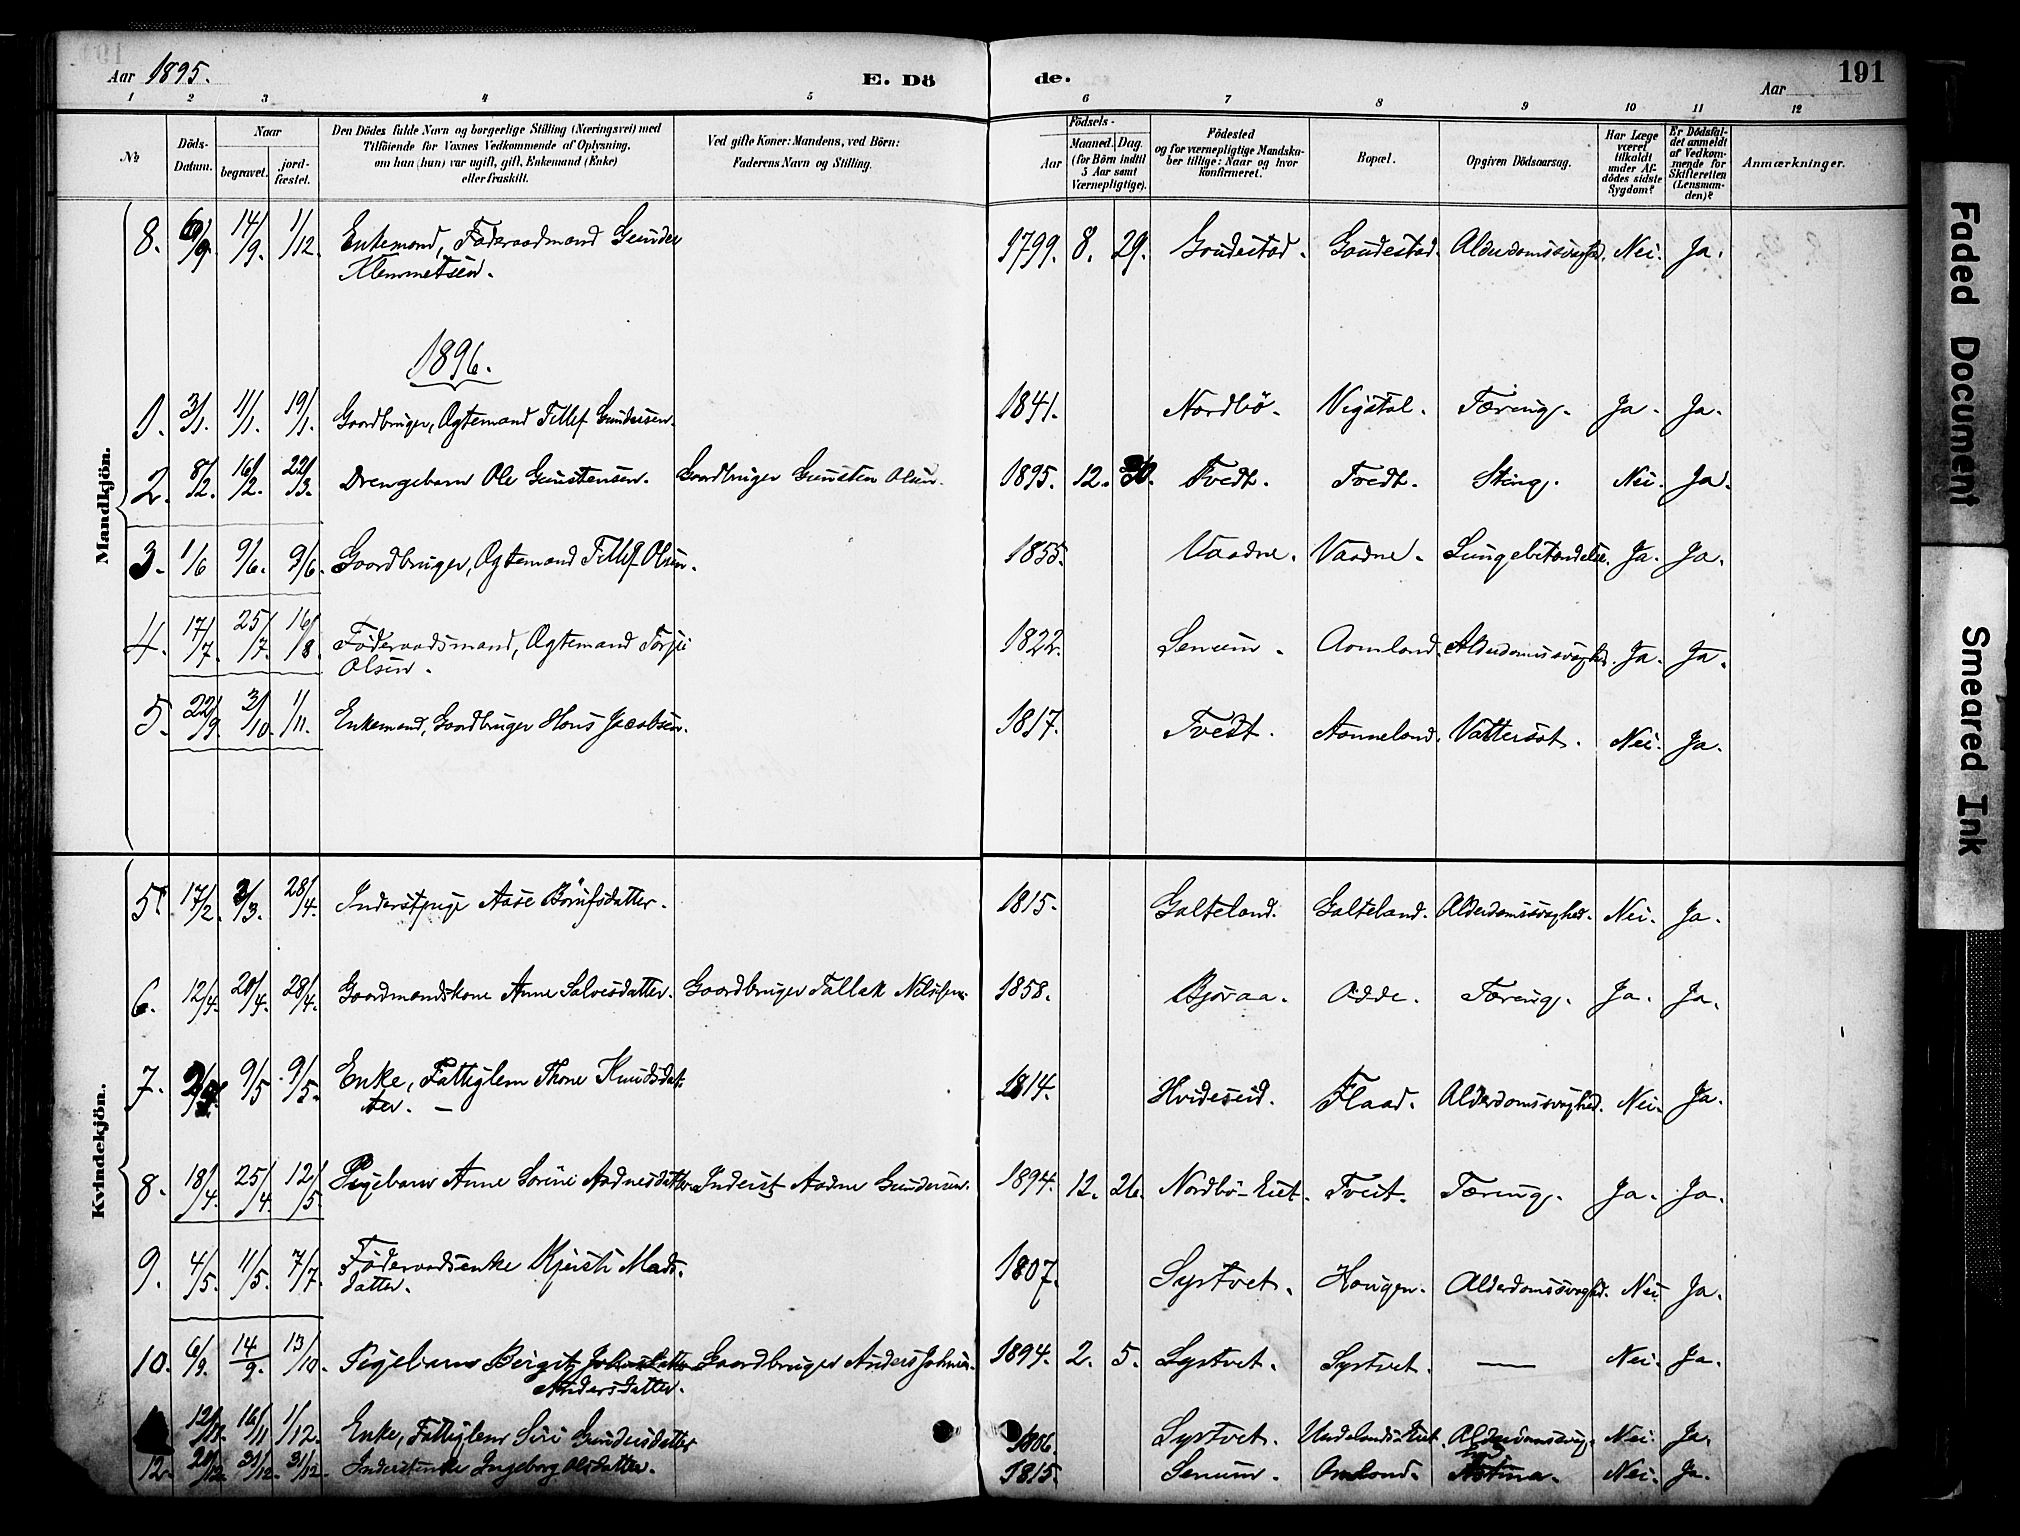 Aar 1895.
E. Dö
de.
Aar
191
1 2 3 4 5 6 7 8 9 10 11 12
No
Döds-
Datum.
Naar
begravet.
jord-
fæstet.
Den Dödes fulde Navn og borgerlige Stilling (Næringsvei) med
Tilföiende for Voxnes Vedkommende af Oplysning,
om han (hun) var ugift, gift, Enkemand (Enke)
eller fraskilt.
Ved gifte Koner: Mandens, ved Börn:
Faderens Navn og Stilling.
Födsels-
Aar
Maaned. Dag.
(for Börn indtil
5 Aar samt
Værnepligtige).
Födested
og for værnepligtige Mandska-
ber tillige: Naar og hvor
konfirmeret.
Bopæl.
Opgiven Dödsaarsag.
Har Læge
været
tilkaldt
under Af-
dödes sidste
Sygdom?
Er Dödsfal-
det anmeldt
af Vedkom-
mende for
Skifteretten
(Lensman-
den)?
Anmærkninger.
Mandkjön.
8. 14/9. 1/12. Enkemand, Föderaadmand Gunder 1799. 8. 29. Gaudestad. Gaudestad. Alderdomssvaghed. Nei. Ja.
Klemmetsen.
1896.
1. 3/1. 11/1. 19/1. Gaardbruger, Ægtemand Tellef Gundersen. 1841. Nordbö. Vigstøl. Tæring. Ja. Ja.
2. 8/2. 16/2. 22/3. Drengebarn Ole Gunstensen. Gaardbruger Gunsten Olsen. 1895. 12. Tvedt. Tvedt. Sting. Nei. Ja.
3. 1/6 9/6. 9/6. Gaardbruger, Ægtemand Tellef Olsen. 1855. Vaadne. Vaadne. Lungebetændelse. Ja. Ja.
4. 17/7. 25/7. 16/8. Föderaadsmand, Ægtemand Torjei 1822. Senum. Aamland. Alderdomssvaghed. Ja. Ja.
Olsen.
5. 22/9. 3/10. 1/11. Enkemand, Gaardbruger Hans Jacobsen. 1817. Tvedt. Aanneland. Vattersot. Nei. Ja.
Kvindekjön.
5. 17/2. 3/3. 28/4. Inderstpige Aase Börufsdatter. 1815. Galteland. Galteland. Alderdomssvaghed. Nei. Ja.
6. 12/4. 20/4. 28/4. Gaardmandskone Anne Salvesdatter. Gaardbruger Tallak Nilssen. 1858. Bjoraa. Odde. Tæring. Ja. Ja.
7. 9/5 9/5. Enke, Fattiglem Thone Knudsdat- 1814. Hvideseid. Flaad. Alderdomssvaghed. Nei. Ja.
ter. —
8. 18/4. 25/4. 12/5. Pigebarn Anne Sorine Aadnesdatter. Inderst Aadne Gundersen. 1894. 12. 26. Nordbö-Eiet. Tveit. Tæring. Ja. Ja.
9. 4/5. 11/5. 7/7. Föderaadsenke Kjersti Mads- 1807. Systvet. Haugen. Alderdomssvaghed. Nei. Ja.
datter.
10. 6/9. 14/9. 13/10. Pigebarn Birgit Johnsdatter Gaardbruger Anders Johnsen. 1894. 2. 5. Systvet. Systvet. — Nei. Ja.
Andersdatter.
12/11. 16/11 1/12. Enke, Fattiglem Siri Gundersdatter 1806. Systvet. Undelands-Eiet. Alderdomssvag- Nei. Ja.
hed
12. 20/12. 31/12. 31/12. Inderstenke Ingeborg Olsdatter. 1815. Senum. Amland. Astma. Nei. Ja.
Faded Document
Smeared Ink